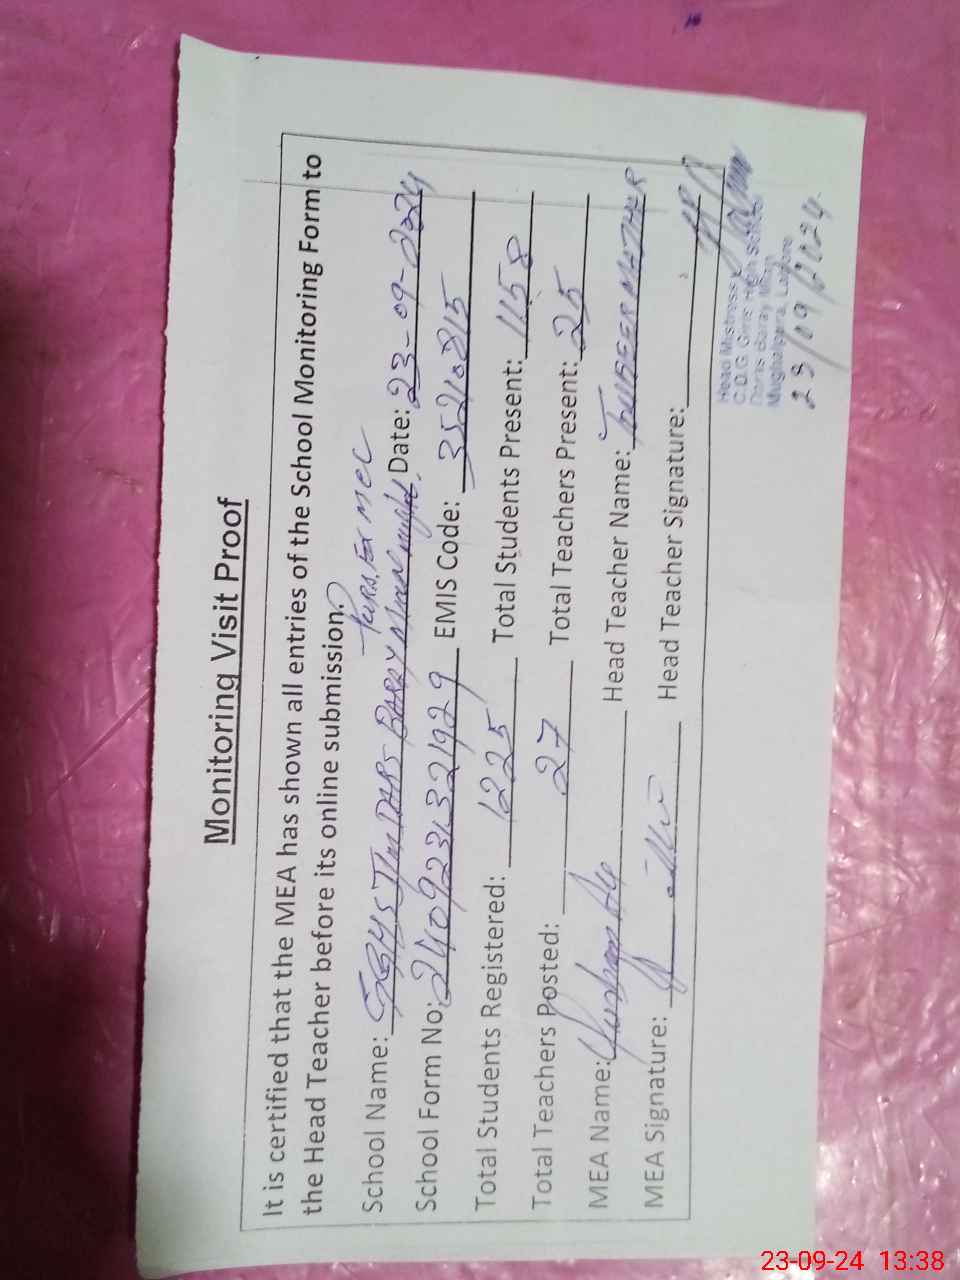 Monitoring Visit Proof
It is certified that the MEA has shown all entries of the School Monitoring Form to
the Head Teacher before its online submission.
Ex MEC
School Name: DARS BARAY Date: 23-09-2024
School Form No: EMIS Code: 35210815
Total Students Registered: 1225 Total Students Present: 1158
Total Teachers Posted: 27 Total Teachers Present: 25
MEA Name: Head Teacher Name: MAZHAR
MEA Signature: Head Teacher Signature:
Head Mistress
C.D.G. Girls High School
Dars Baray Mian
Mughalpura, Lahore
23/09/2024
23-09-24 13:38